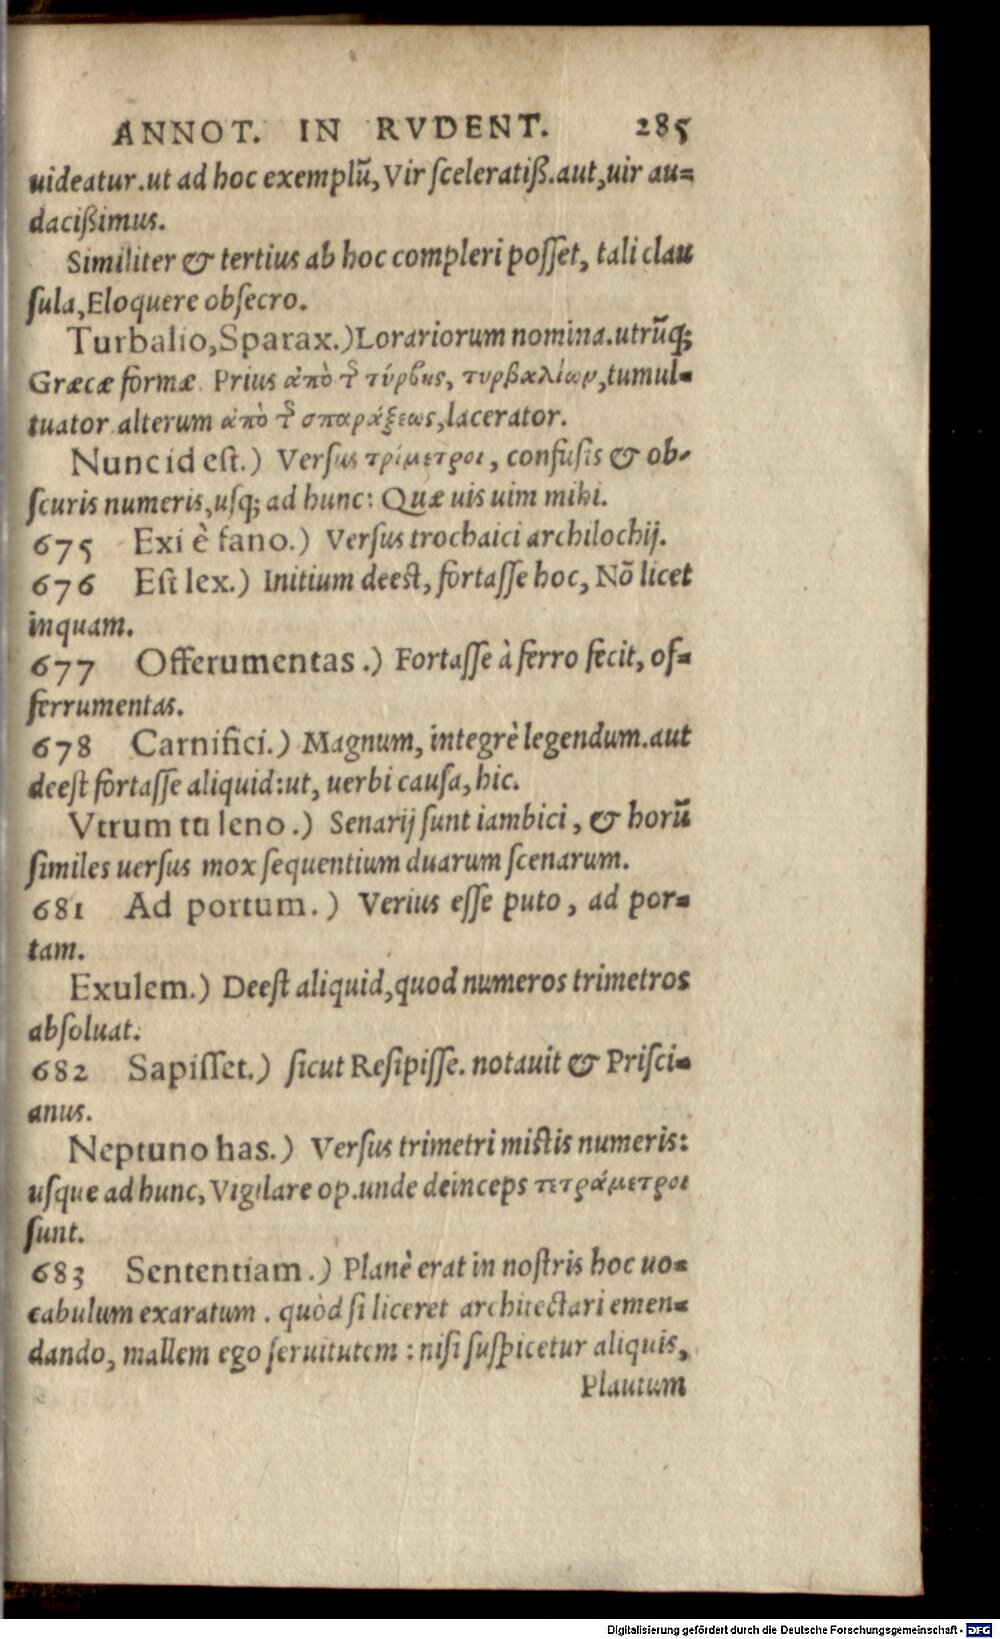 ANNOT. IN RVDENT. 285
uideatur. ut ad hoc exemplũ, Vir sceleratiß. aut, uir au=
dacißimus.
Similiter & tertius ab hoc compleri posset, tali clau
sula, Eloquere obsecro.
Turbalio, Sparax.) Lorariorum nomina. utrũq;
Græcæ formæ. Prius ἀπὸ τ͂ τύρβης, τυρβαλίων, tumul=
tuator. alterum ἀπὸ τ͂ σπαράξεως, lacerator.
Nunc id est.) Versus τρίμετροι, confusis & ob-
scuris numeris, usq; ad hunc: Quæ uis uim mihi.
675 Exi è fano.) Versus trochaici archilochij.
676 Est lex.) Initium deest, fortasse hoc, Nõ licet
inquam.
677 Offerumentas.) Fortasse à ferro fecit, of=
ferrumentas.
678 Carnifici.) Magnum, integrè legendum. aut
deest fortasse aliquid: ut, uerbi causa, hic.
Vtrum tu leno.) Senarij sunt iambici, & horũ
similes uersus mox sequentium duarum scenarum.
681 Ad portum.) Verius esse puto, ad por=
tam.
Exulem.) Deest aliquid, quod numeros trimetros
absoluat.
682 Sapisset.) sicut Resipisse. notauit & Prisci=
anus.
Neptuno has.) Versus trimetri mistis numeris:
usque ad hunc, Vigilare op. unde deinceps τετράμετροι
sunt.
683 Sententiam.) Planè erat in nostris hoc uo=
cabulum exaratum. quòd si liceret architectari emen=
dando, mallem ego seruitutem: nisi suspicetur aliquis,
Plautum
Digitalisierung gefördert durch die Deutsche Forschungsgemeinschaft - DFG